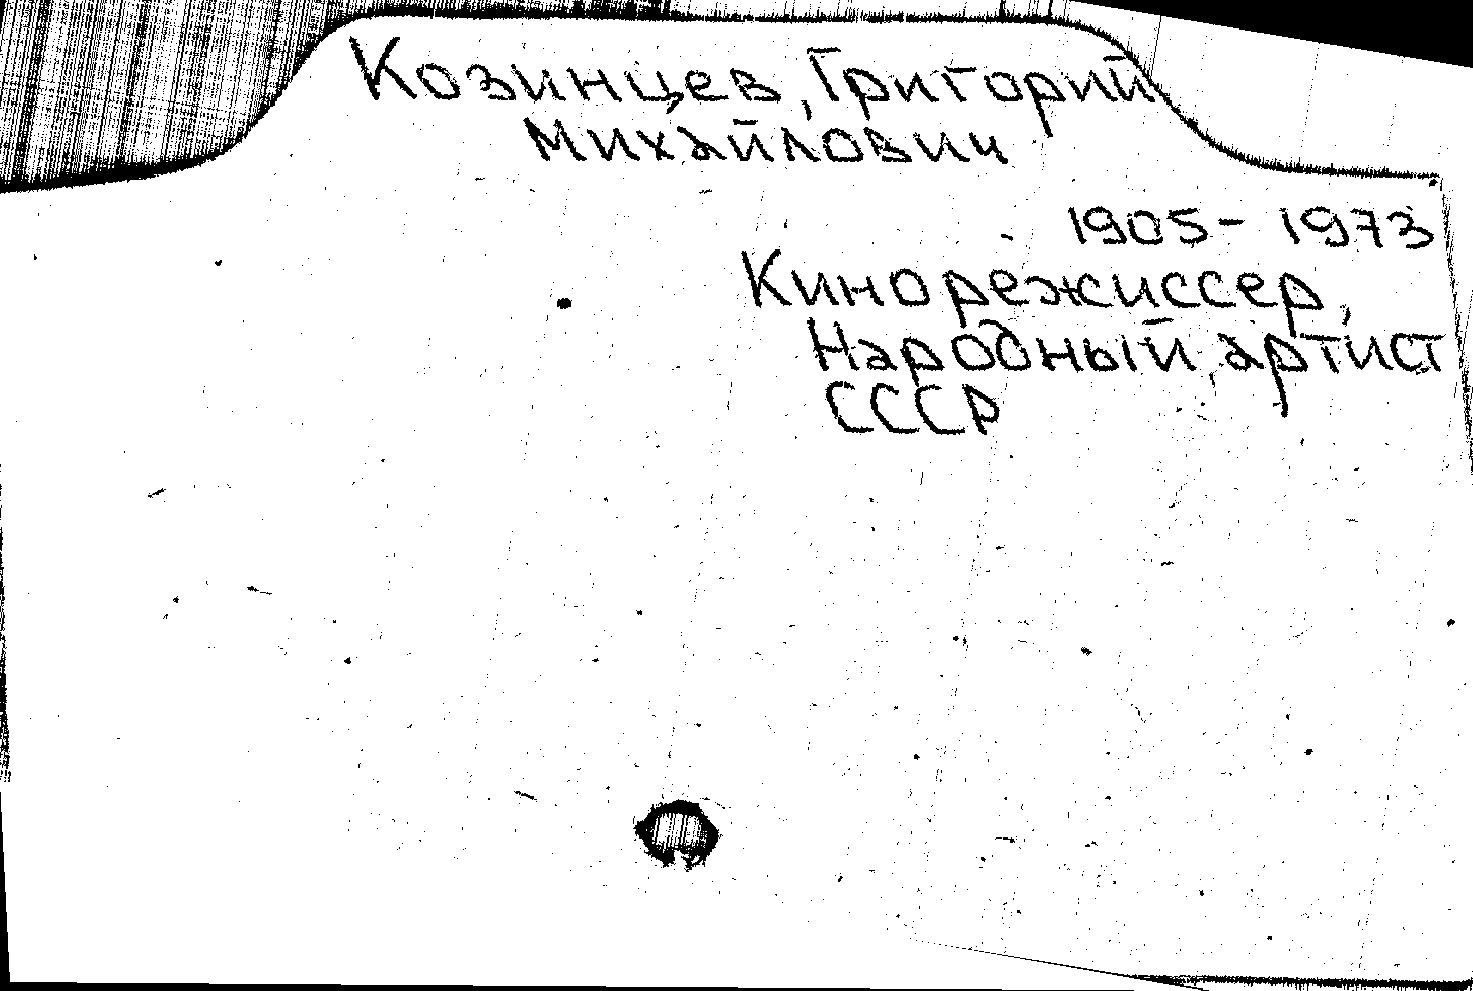 Козинцев, Григорий
Михайлович
1905 - 1973
Кинорежиссер,
Народный артист
СССР